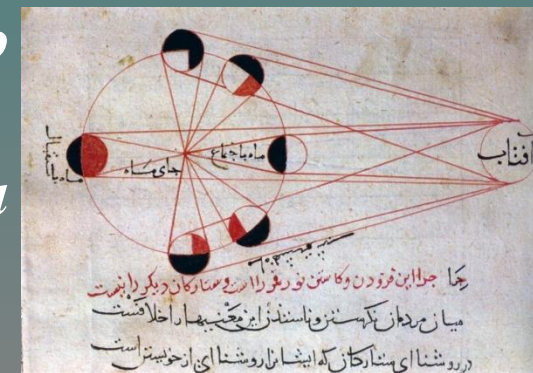 افتاب
ماه باجتماع
جای ماه
ماه باستقبال
جرا این فزودن وکاستن نور قمر را است وستارکان دیکر را نیست
میان مردمان این معنیها را خلافست
در روشنا ای ستارکان که ایشانرا روشنا ای از خویشتن است